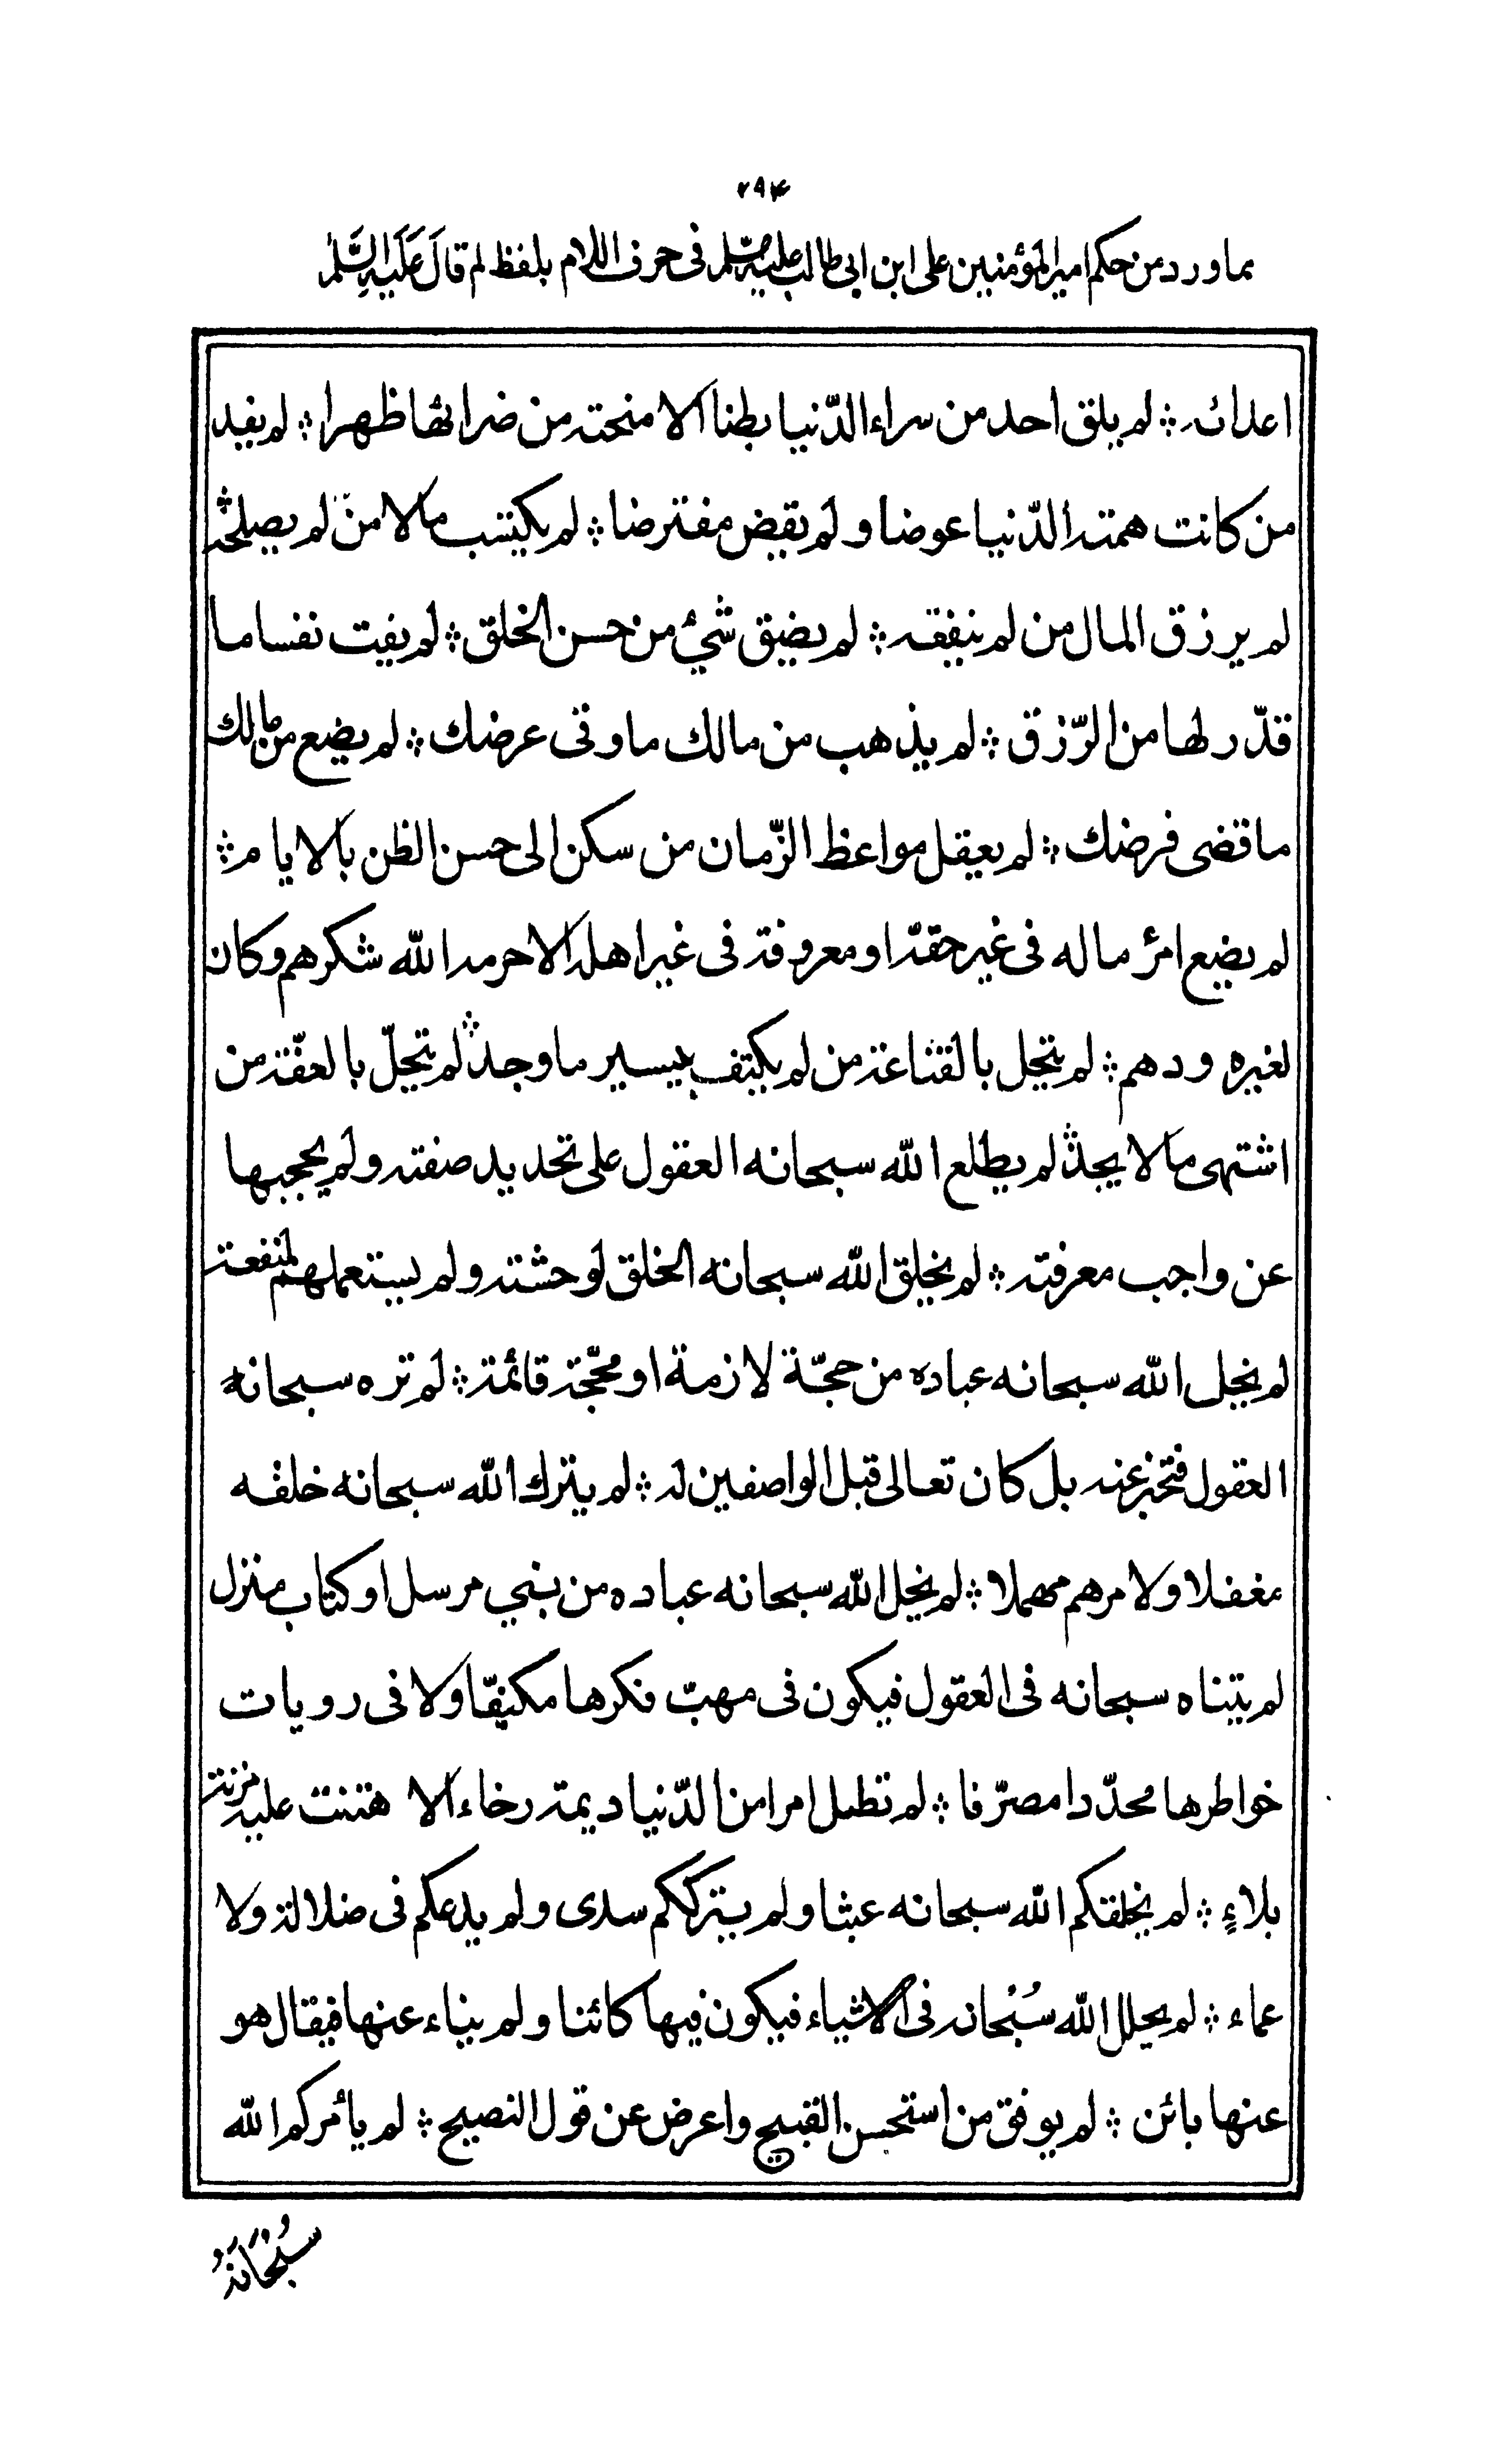 ۲۹۴
مما ورد من حكم امير المؤمنين على ابن ابى طالب عليه السلم فى حرف اللام بلفظ لم قال عَلَيهِ السَّلم
اعدائه ؞ لم يلق احد من سراء الدّنيا بطنا الا منحته من ضرائها ظهرا ؞ لم يفد
من كانت همته الدّنيا عوضا ولم يقض مفترضا ؞ لم يكتسب مالا من لم يصلحه ؞
لم يرزق المال من لم ينفقه ؞ لم يضيق شئ من حسن الخلق ؞ لم يفت نفسا ما
قدّر لها من الرّزق ؞ لم يذهب من مالك ما وقى عرضك ؞ لم يضع من مالك
ما قضى فرضك ؞ لم يعقل مواعظ الزّمان من سكن الى حسن الظن بالايام ؞
لم يضيع امرؤ ماله فى غير حقه او معروفه فى غير اهله الا حرمه الله شكرهم وكان
لغيره ودهم ؞ لم يتحل بالقناعة من لم يكتف بيسير ما وجد ؞ لم يتحلّ بالعفّة من
اشتهى ما لا يجد ؞ لم يطلع الله سبحانه العقول على تحديد صفته ولم يحجبها
عن واجب معرفته ؞ لم يخلق الله سبحانه الخلق لوحشته ولم يستعملهم لمنفعته
لم يخل الله سبحانه عباده من حجّة لازمة او محجّة قائمة ؞ لم تره سبحانه
العقول فتخبر عنه بل كان تعالى قبل الواصفين له ؞ لم يترك الله سبحانه خلقه
مغفلا ولا امرهم مهملا ؞ لم يخل الله سبحانه عباده من نبي مرسل او كتاب منزل
لم يتناه سبحانه فى العقول فيكون فى مهبّ فكرها مكيفّا ولا فى رويات
خواطرها محدّدا مصرّفا ؞ لم تطل امرا من الدّنيا ديمة رخاء الا هتنت عليه مزنة
بلاءٍ ؞ لم يخلقكم الله سبحانه عبثا ولم يترككم سدى ولم يدعكم فى ضلالة ولا
عماء ؞ لم يحلل الله سُبْحانه فى الاشياء فيكون فيها كائنا ولم يناء عنها فيقال هو
عنها بائن ؞ لم يوفق من استحسن القبيح واعرض عن قول النصيح ؞ لم يأمركم الله
سُبْحَانَهُ